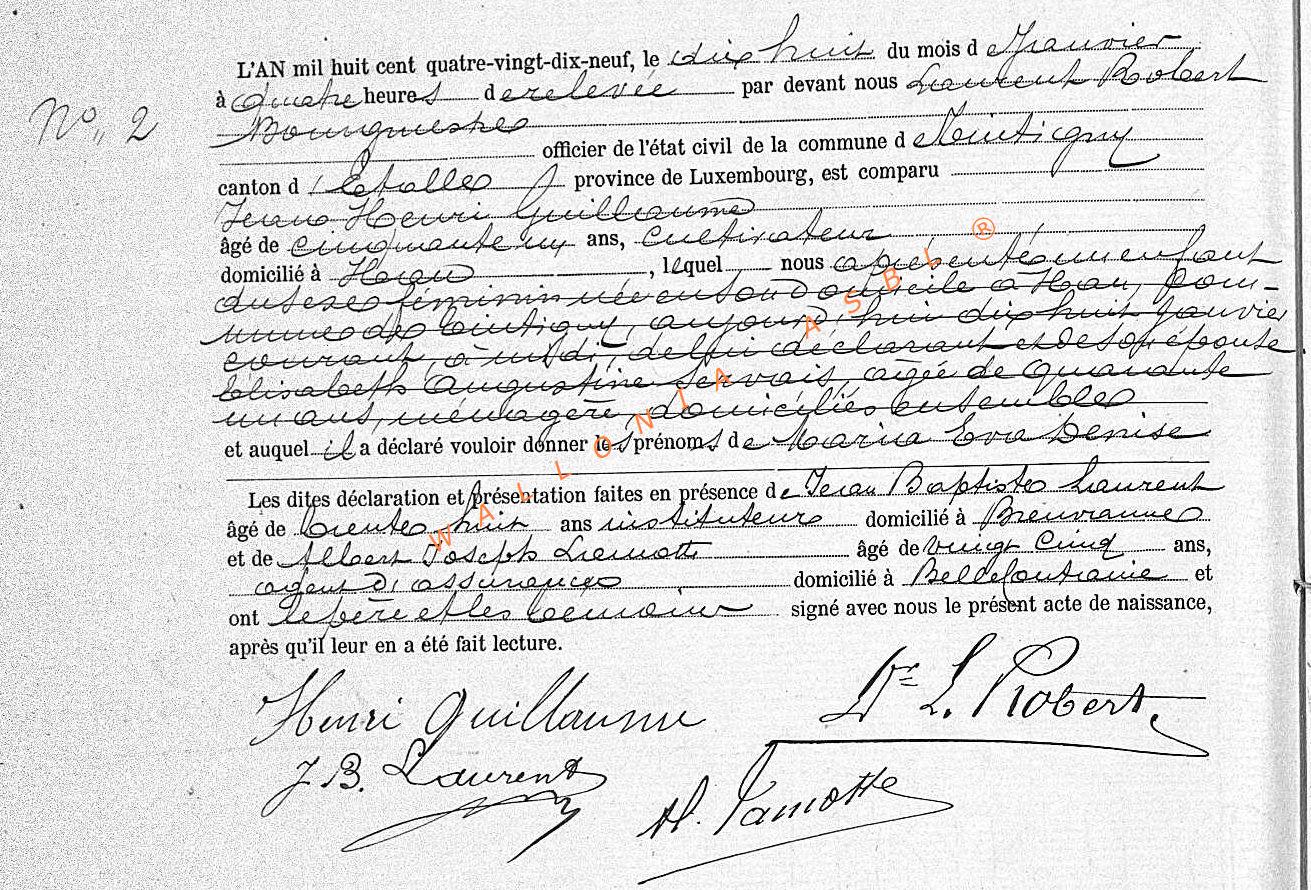 L'AN mil huit cent quatre-vingt-dix-neuf, le dix huit du mois de Janvier
à quatre heures de relevée par devant nous Laurent Robert
No,, 2
Bourgmestre
officier de l'état civil de la commune de Tintigny
canton d'Etalle province de Luxembourg, est comparu
Jean Henri Guillaume
âgé de cinquante ans, cultivateur
domicilié à Han, lequel nous a présenté un enfant
du sexe féminin née en son domicile à Han, com-
mune de Tintigny, aujourd'hui dix huit Janvier
courant, à midi, de lui déclarant et de son épouse
Elisabeth Augustine Servais, agée de quarante
un ans, ménagère, domiciliés ensemble
et auquel il a déclaré vouloir donner les prénoms de Maria Eva Denise
Les dites déclaration et présentation faites en présence de Jean Baptiste Laurent
âgé de trente huit ans instituteur domicilié à Breuvanne
et de Albert Joseph Lamotte âgé de vingt cinq ans,
agent d'assurances domicilié à Bellefontaine et
ont le père et les témoins signé avec nous le présent acte de naissance,
après qu'il leur en a été fait lecture.
Henri Guillaume
Dr L. Robert.
J. B. Laurent
A. Lamotte
WALLONIA ASBL ®